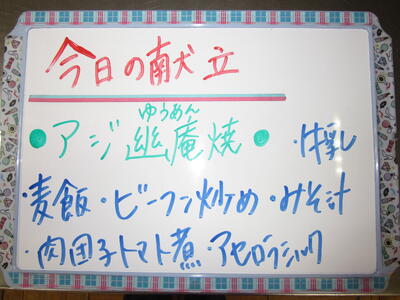 今日の献立
ゆうあん
●アジ幽庵焼● ・牛乳
・麦飯・ビーフン炒め・みそ汁
・肉団子トマト煮・アセロラシック